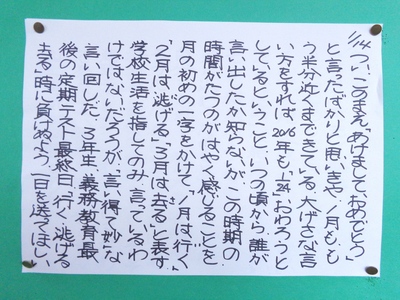 1/14
つい、このまえ「あけましておめでとう」
と言ったばかりと思いきや、1月も、も
う半分近くまできている。大げさな言
い方をすれば、2016年も「1/24」おわろうと
しているということ…。いつの頃から、誰が
言い出したか知らないが、この時期の
時間がたつのがはやく感じることを
月の初めの一字をかけて、「1月は行く」
「2月は、逃げる」「3月は、去る」と表す
学校生活を指してのみ、言っているわ
けではないだろうが、“言い得て妙”な
言い回しだ。3年生、義務教育最
後の定期テスト最終日。行く、逃げる
去る、時に負けぬよう、一日を送ってほしい